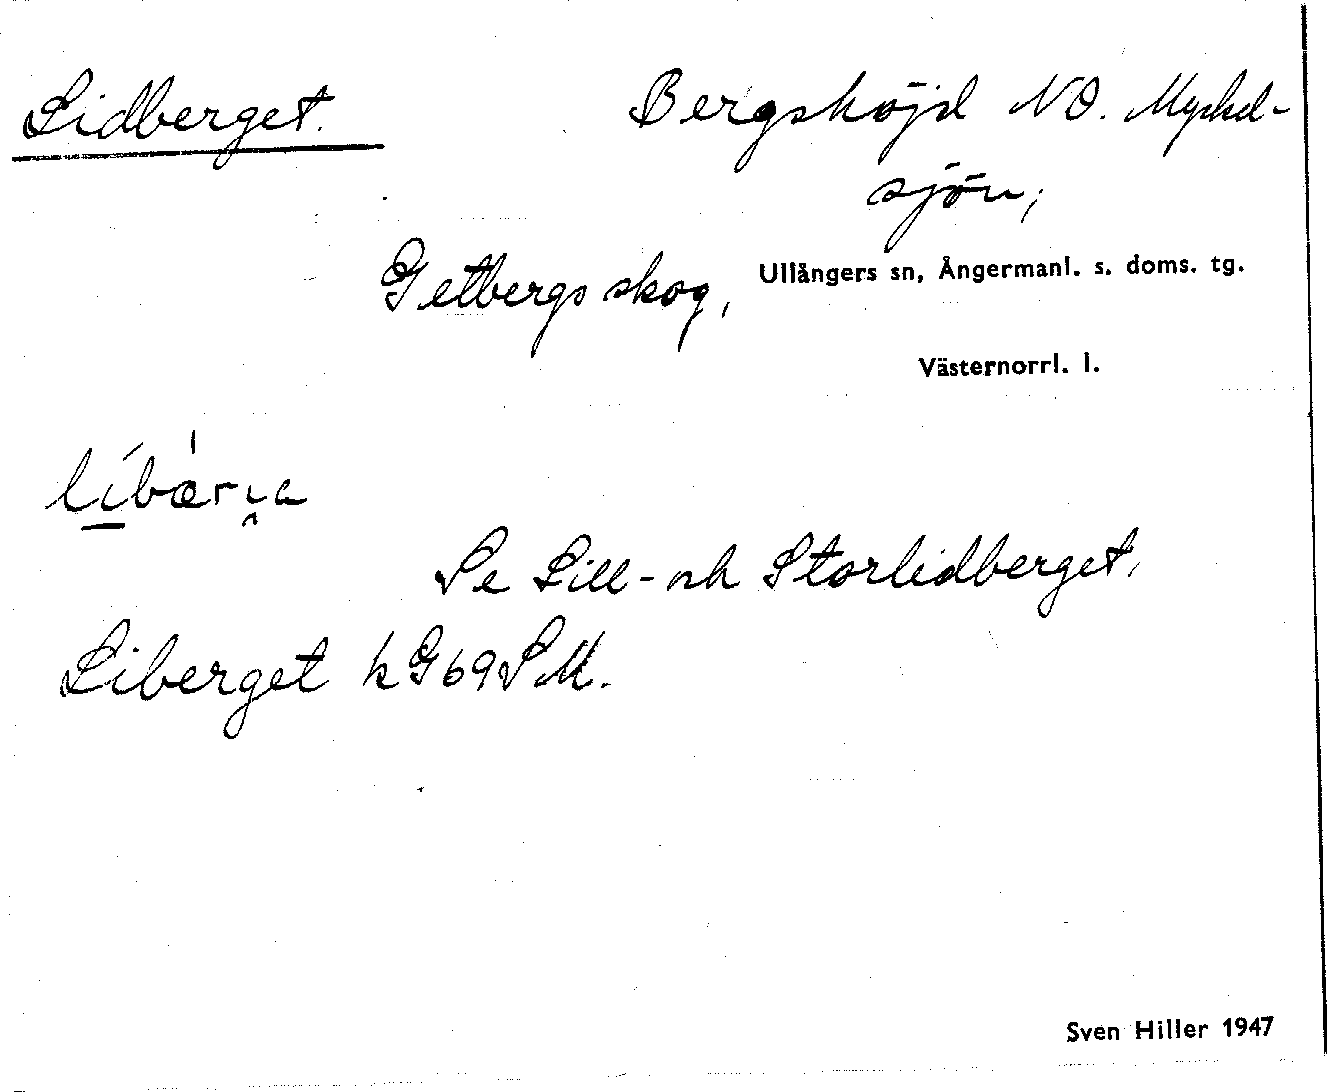 Lidberget.
Bergshöjd NO. Myckel-
sjön,
Getbergs skog, Ullångers sn, Ångermanl. s. doms. tg.
Västernorrl. l.
Se Lill- och Storlidberget,
Liberget k G69SM.
Sven Hiller 1947